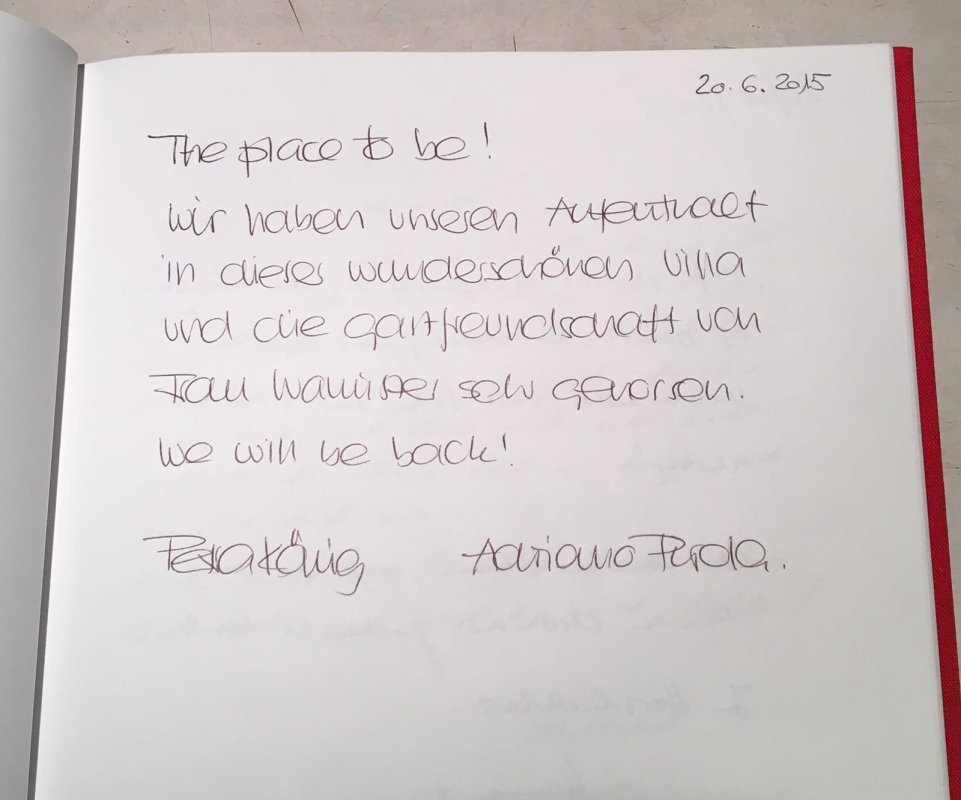 20.6.2015
The place to be!
Wir haben unseren Aufenthalt
in dieser wunderschönen Villa
und die Gastfreundschaft von
Frau sehr genossen.
We will be back!
Petra König Adriano Perola.